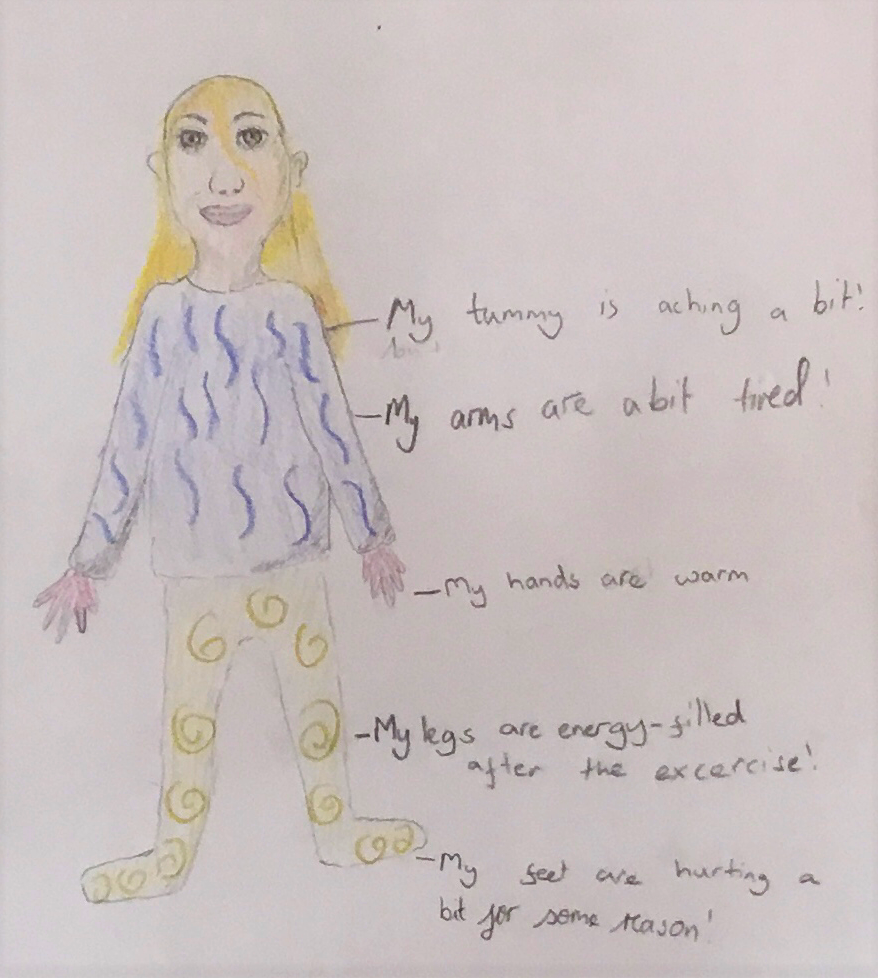 My tummy is aching a bit!
My arms are a bit tired!
My hands are warm
My legs are energy-filled
after the excercise!
My feet are hurting a
bit for some reason!